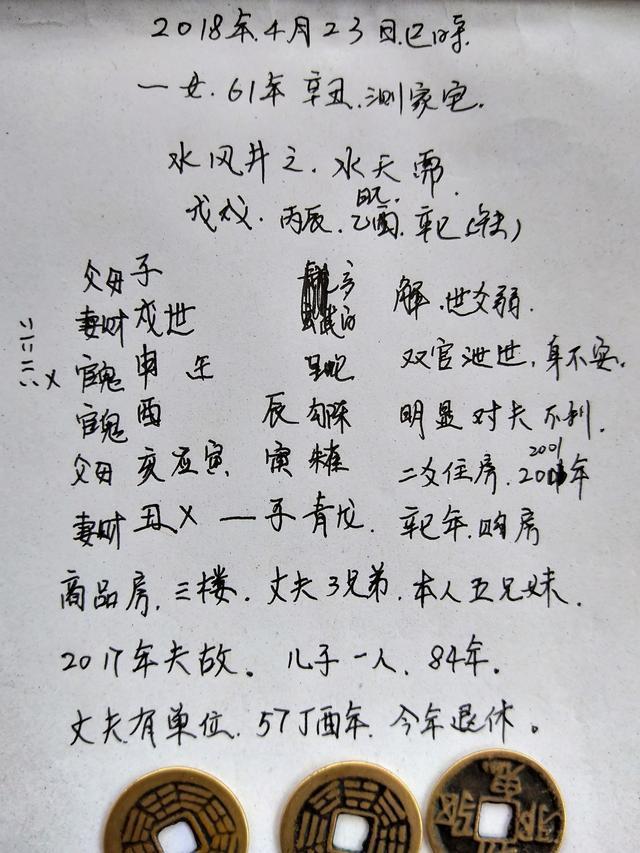 2018年.4月23日.巳时.
一女.61年 辛丑.测家宅.
水风井之.水天需.
戌戌.丙辰.乙酉.辛巳(午未)
日元.
父母 子 玄
妻财 戌 世 白 解.世爻弱.
官鬼 申 午 呈蛇 双官泄世.身不安.
官鬼 酉 辰 勾陈 明显对夫不利.
父母 亥 应 寅 寅 朱雀 二爻住房.2001年
妻财 丑 X — 子 青龙. 辛巳年.购房
商品房.三楼.丈夫3兄弟.本人五兄妹.
2017年夫故。儿子一人.84年.
丈夫有单位.57丁酉年.今年退休。